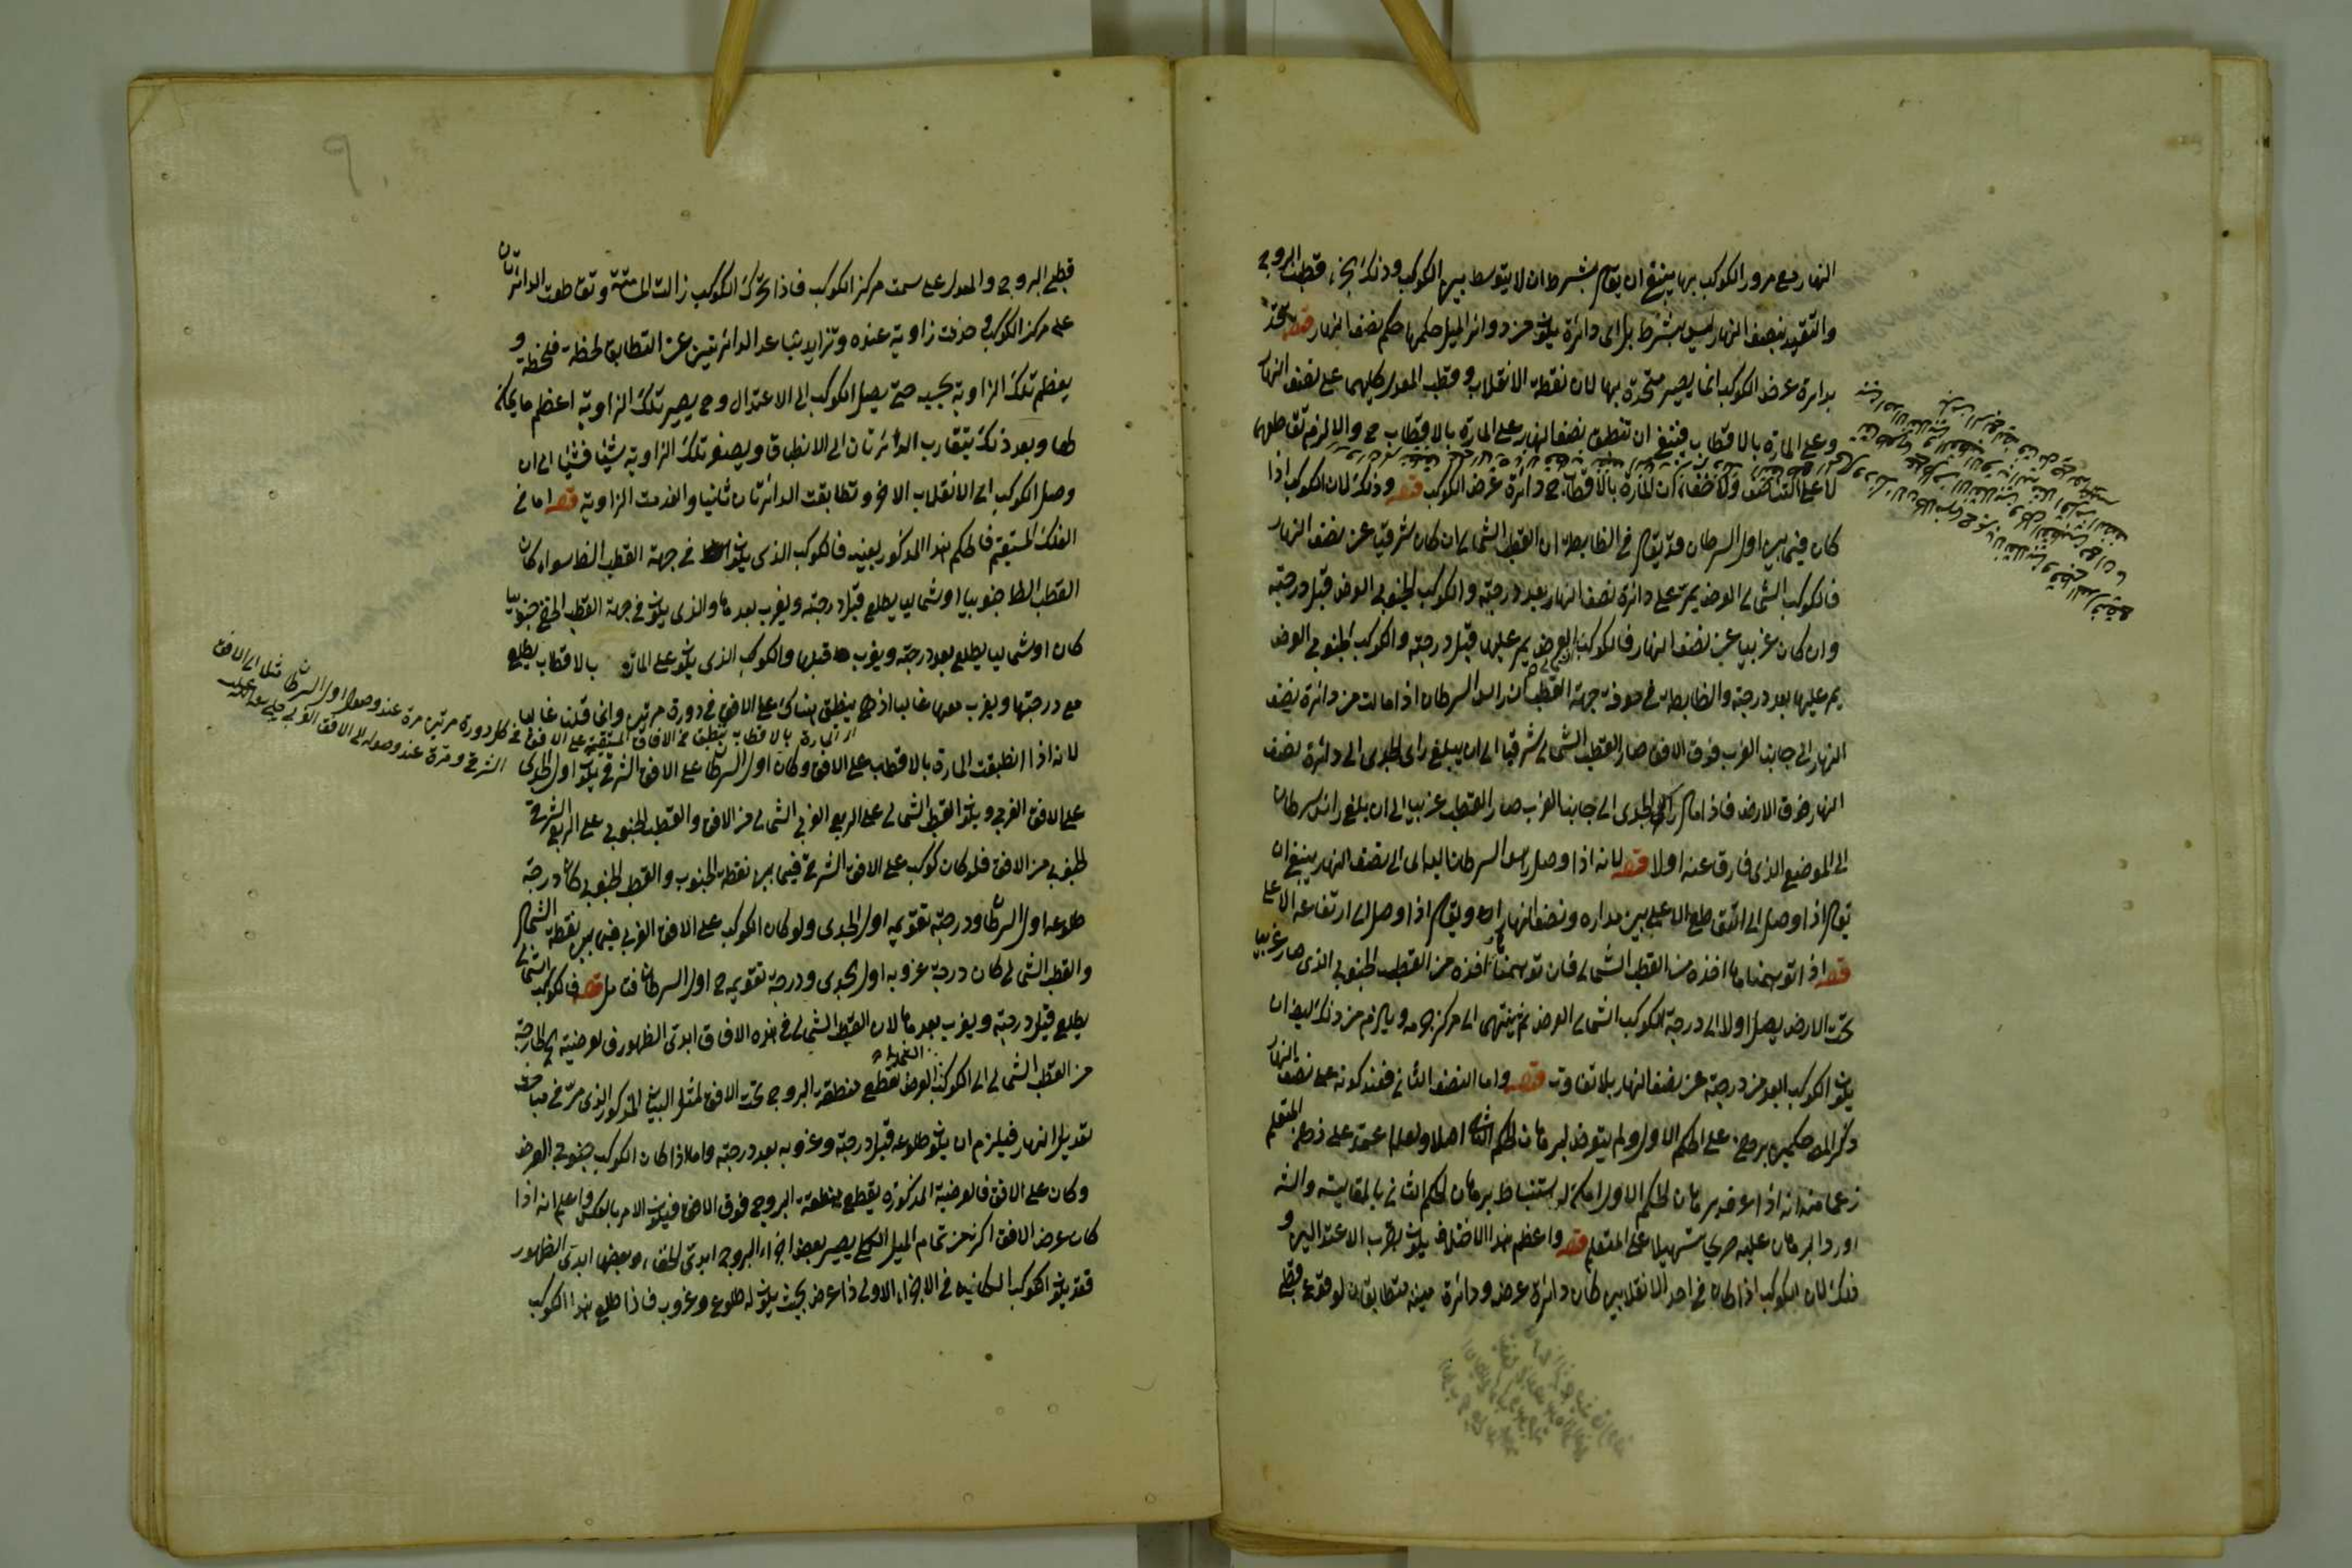 النهار مع مرور الكوكب بها ينبغي ان يقام بشرط ان لا يتوسط بينها الكوكب وذلك الجزء قطب البروج
والتقييد بنصف النهار ليس بشرط بل اى دائرة يكون من دوائر الميل حكمها حكم نصف النهار قوله تتحد
بدايرة عرض الكوكب انما يصير متحدة بها لان نقطة الانقلاب وقطب المعدل كليهما على نصف النهار
وعلى المارة بالاقطاب فينبغي ان تنطبق نصف النهار على المارة بالاقطاب ح والا لزم تقاطعهما
لا على التناصف ولا خفاء ان المارة بالاقطاب ح دائرة عرض الكوكب قوله وذلك لان الكوكب اذا
كان فيما بين اول السرطان وقد يقام في الضابطة ان القطب الشمالى ان كان شرقيا عن نصف النهار
فالكوكب الشمالى العرض يمر على دائرة نصف النهار بعد درجته والكوكب الجنوبى العرض قبل درجته
وان كان غربيا عن نصف النهار فالكوكب العرض يمر عليها قبل درجته والكوكب الجنوبى العرض
يمر عليها بعد درجته والضابطة في معرفة جهة القطب ان راس السرطان اذا مالت من دائرة نصف
النهار الى جانب الغرب فوق الافق صار القطب الشمالى شرقيا الى ان يبلغ راس الجدى الى دائرة نصف
النهار فوق الارض فاذا مال راس الجدى الى جانب الغرب صار القطب غربيا الى ان يبلغ راس سرطان
الى الموضع الذى فارق عنه اولا قوله لانه اذا وصل راس السرطان الى نصف النهار ينبغي ان
يقام اذا وصل الى التقاطع الاعلى بين مداره ونصف النهار او يقام اذا وصل الى ارتفاعه الاعلى
قوله اذا توهمنا ما اخذه من القطب الشمالى فان توهمنا اخذه من القطب الجنوبى الذى صار غربيا
تحت الارض يصل اولا الى درجة الكوكب الشمالى العرض ثم ينتهى الى مركز جرمه ويلزم من ذلك ايضا ان
يكون الكوكب ابعد من درجته عن نصف النهار بلا تفاوت قوله واما النصف الثانى فعند كونه على نصف النهار
ذكر المص حكمين برهن على الحكم الاول ولم يتعرض لبرهان الحكم الثانى اصلا ولعله اعتمد على ذهن المتعلم
زعما منه انه اذا عرف برهان الحكم الاول امكنه استنباط برهان الحكم الثانى بالمقايسة والش
اورد البرهان عليه صريحا تسهيلا على المتعلم قوله واعظم هذا الاختلاف يكون بقرب الاعتدالين و
ذلك لان الكوكب اذا كان في احد الانقلابين كان دائرة عرضه ودائرة ميله متطابقان لوقوع قطبى
قطبى البروج والمعدل على سمت مركز الكوكب فاذا تحرك الكوكب زالت المسامتة وتقاطعت الدائرتان
على مركز الكوكب وحدثت زاوية عنده وتزايد تباعد الدائرتين عن التطابق لحظة فلحظة و
يعظم تلك الزاوية بحسبه حتى يصل الكوكب الى الاعتدال وح يصير تلك الزاوية اعظم ما يمكن
لها وبعد ذلك يتقارب الدائرتان الى الانطباق ويصغر تلك الزاوية شيئا فشيئا الى ان
وصل الكوكب الى الانقلاب الاخر وتطابقت الدائرتان ثانيا وانعدمت الزاوية قوله اما في
الفلك المستقيم فالحكم هذا المذكور بعينه فالكوكب الذى يكون في جهة القطب الظ سواء كان
القطب الظ جنوبيا او شماليا يطلع قبل درجته ويغرب بعدها والذى يكون في جهة القطب الخفى جنوبيا
كان او شماليا يطلع بعد درجته ويغرب قبلها والكوكب الذى يكون على المارة بالاقطاب يطلع
مع درجتها ويغرب معها غالبا اذ ح ينطبق هناك على الافق في دورة مرتين وانما قلنا غالبا
لانه اذا انطبقت المارة بالاقطاب على الافق وكان اول السرطان على الافق الشرقى يكون اول الجدى
على الافق الغربى ويكون القطب الشمالى على الربع الغربى الشمالى من الافق والقطب الجنوبى على الربع الشرقى
الجنوبى من الافق فلو كان كوكب على الافق الشرقى فيما بين نقطة الجنوب والقطب الجنوبى كان درجة
طلوعه اول السرطان ودرجة تقويمه اول الجدى ولو كان الكوكب على الافق الغربى فيما بين نقطة الشمال
والقطب الشمالى كان درجة غروبه اول الجدى ودرجة تقويمه ح اول السرطان فتامل قوله فالكوكب الشمالى
يطلع قبل درجته ويغرب بعدها لان القطب الشمالى في هذه الافاق ابدى الظهور فالعرضية الخارجة
من القطب الشمالى الى الكوكب العرض تقطع منطقة البروج تحت الافق لمثل البيان المذكور الذى مر في مباحث
تعديل النهار فيلزم ان يكون طلوعه قبل درجته وغروبه بعد درجته واما اذا كان الكوكب جنوبى العرض
وكان على الافق فالعرضية المذكورة يقطع منطقة البروج فوق الارض فيكون الامر بالعكس واعلم انه اذا
كان عرض الافق اكثر من تمام الميل الكلى يصير بعض اجزاء البروج ابدى الخفاء وبعضها ابدى الظهور
فقد يكون الكوكب الكائن في الاجزاء الاولى ذا عرض بحيث يكون له طلوع وغروب فاذا طلع هذا الكوكب
اذ المارة بالاقطاب ينطبق في الافاق المستقيمة على الافق في كل دورة مرتين مرة عند وصول اول السرطان الى الافق
الشرقى ومرة عند وصوله الى الافق الغربى